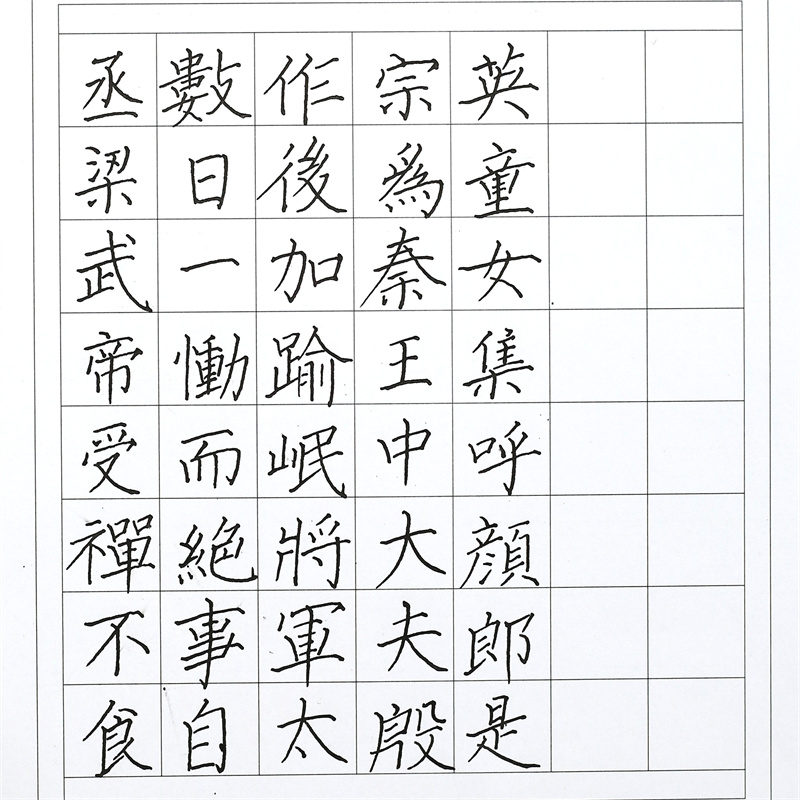 丞梁武帝受禪不食
數日一慟而絶事自
作後加踰岷將軍太
宗爲秦王中大夫殷
英童女集呼顔郎是